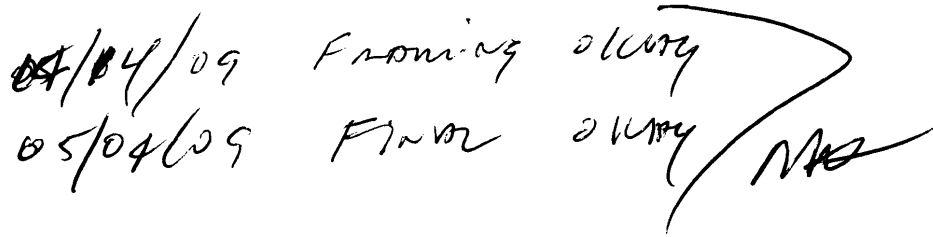 /04/09 Framing okay
05/04/09 Final okay